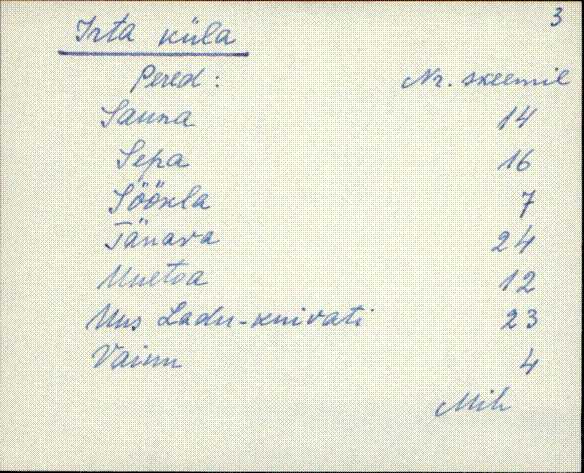 3
Irta küla
Pered: Nr. skeemil
Sauna 14
Sepa 16
Söökla 7
Tänava 24
Uuetoa 12
Uus Ladu-kuivati 23
Vainu 4
Mih